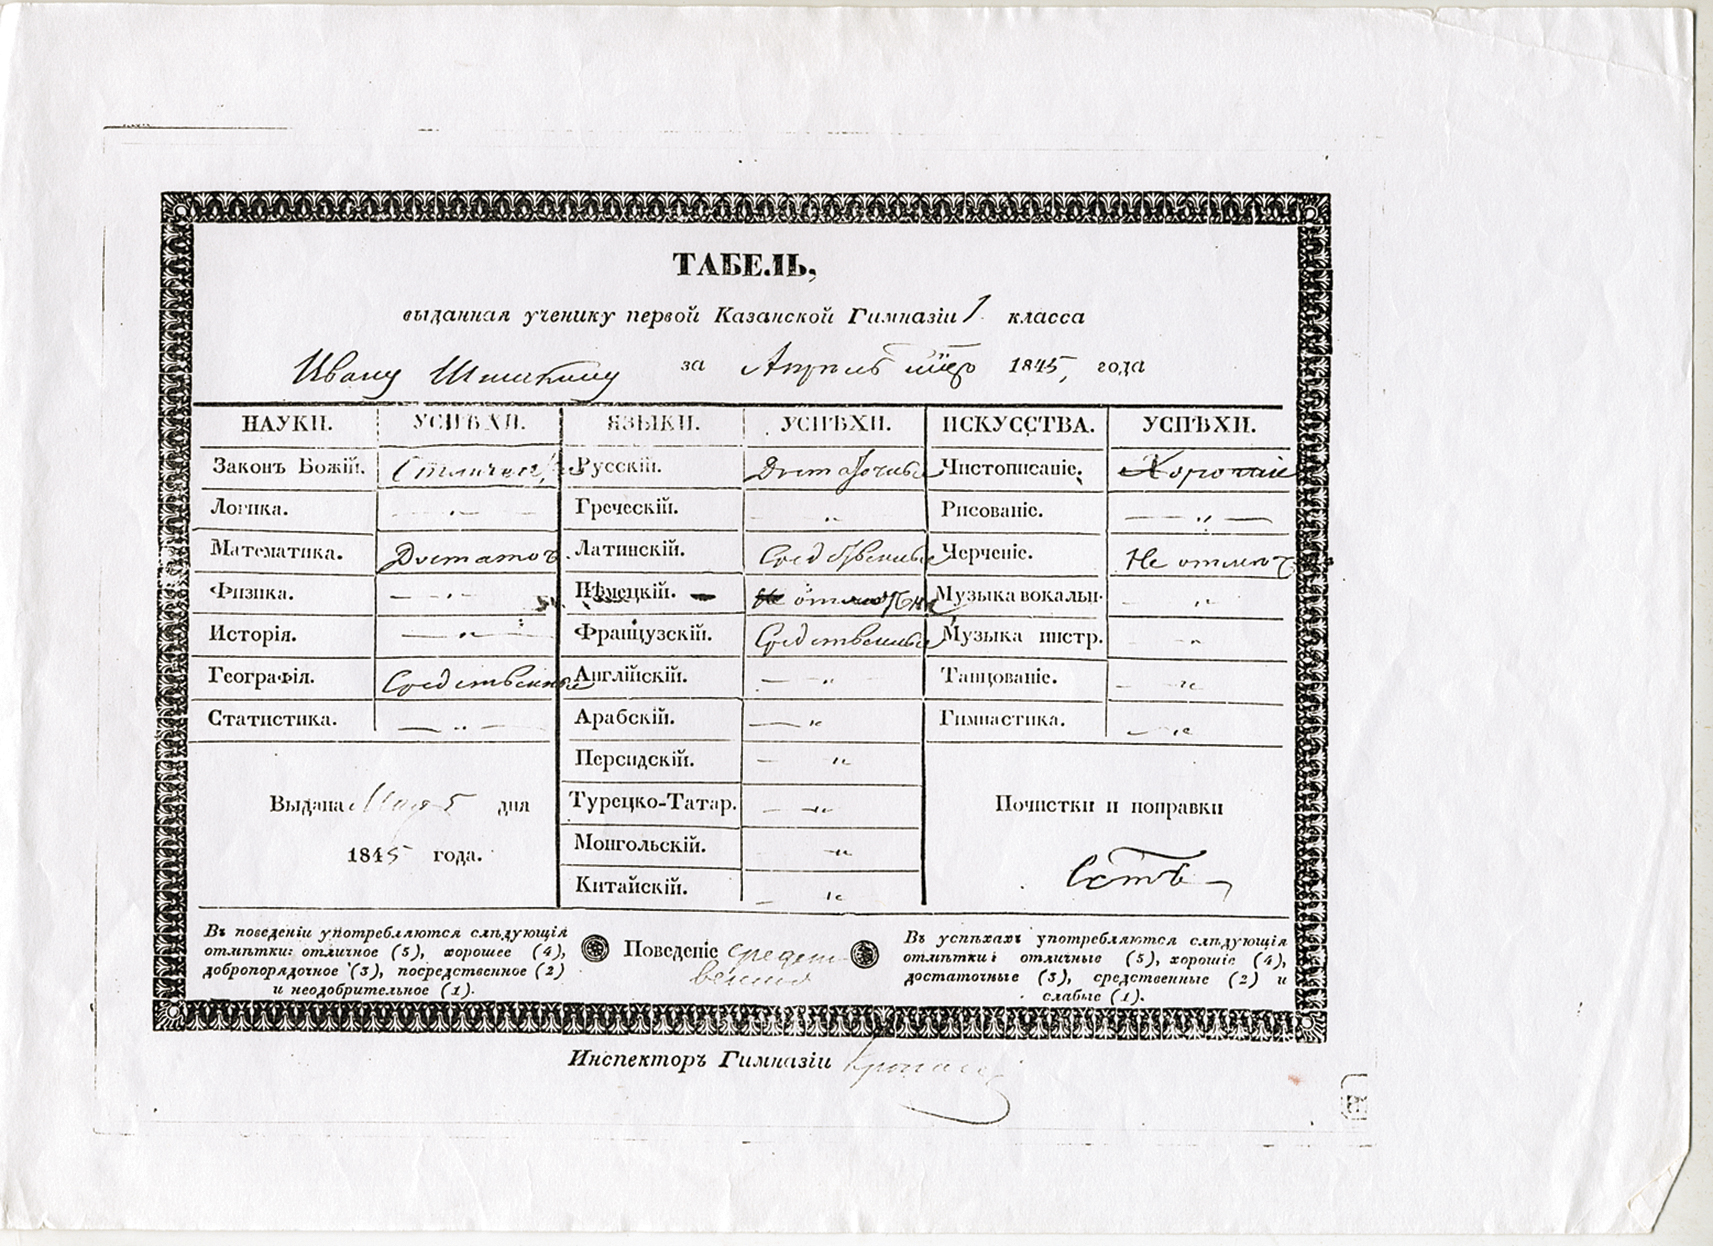 ТАБЕЛЬ,
выданная ученику первой Казанской Гимназіи 1 класса
Ивану Шишкину за Апрель 1845, года
НАУКИ. УСПѢХИ. ЯЗЫКИ. УСПѢХИ. ИСКУССТВА. УСПѢХИ.
Законъ Божій. Русскій. Чистописаніе. Хорошіе
Логика. — „ — Греческій. — „ Рисованіе. — „ —
Математика. Достаточ Латинскій. Средственные Черченіе. Не отмѣч
Физика. — „ — Нѣмецкій. Музыка вокальн. — „
Исторія. — „ — Французскій. Средственные Музыка инстр. — „
Географія. Средственные Англійскій. — „ Танцованіе. — „
Статистика. — „ — Арабскій. — „ Гимнастика. — „
Персидскій. — „
Турецко-Татар. — „
Монгольскій. — „
Китайскій. — „
Выдана Маія 5 дня
1845 года.
Почистки и поправки
Есть
Въ поведеніи употребляются слѣдующія
отмѣтки: отличное (5), хорошее (4),
добропорядочное (3), посредственное (2)
и неодобрительное (1).
Поведеніе средст
венное
Въ успѣхахъ употребляются слѣдующія
отмѣтки: отличные (5), хорошіе (4),
достаточные (3), средственные (2) и
слабые (1).
Инспекторъ Гимназіи